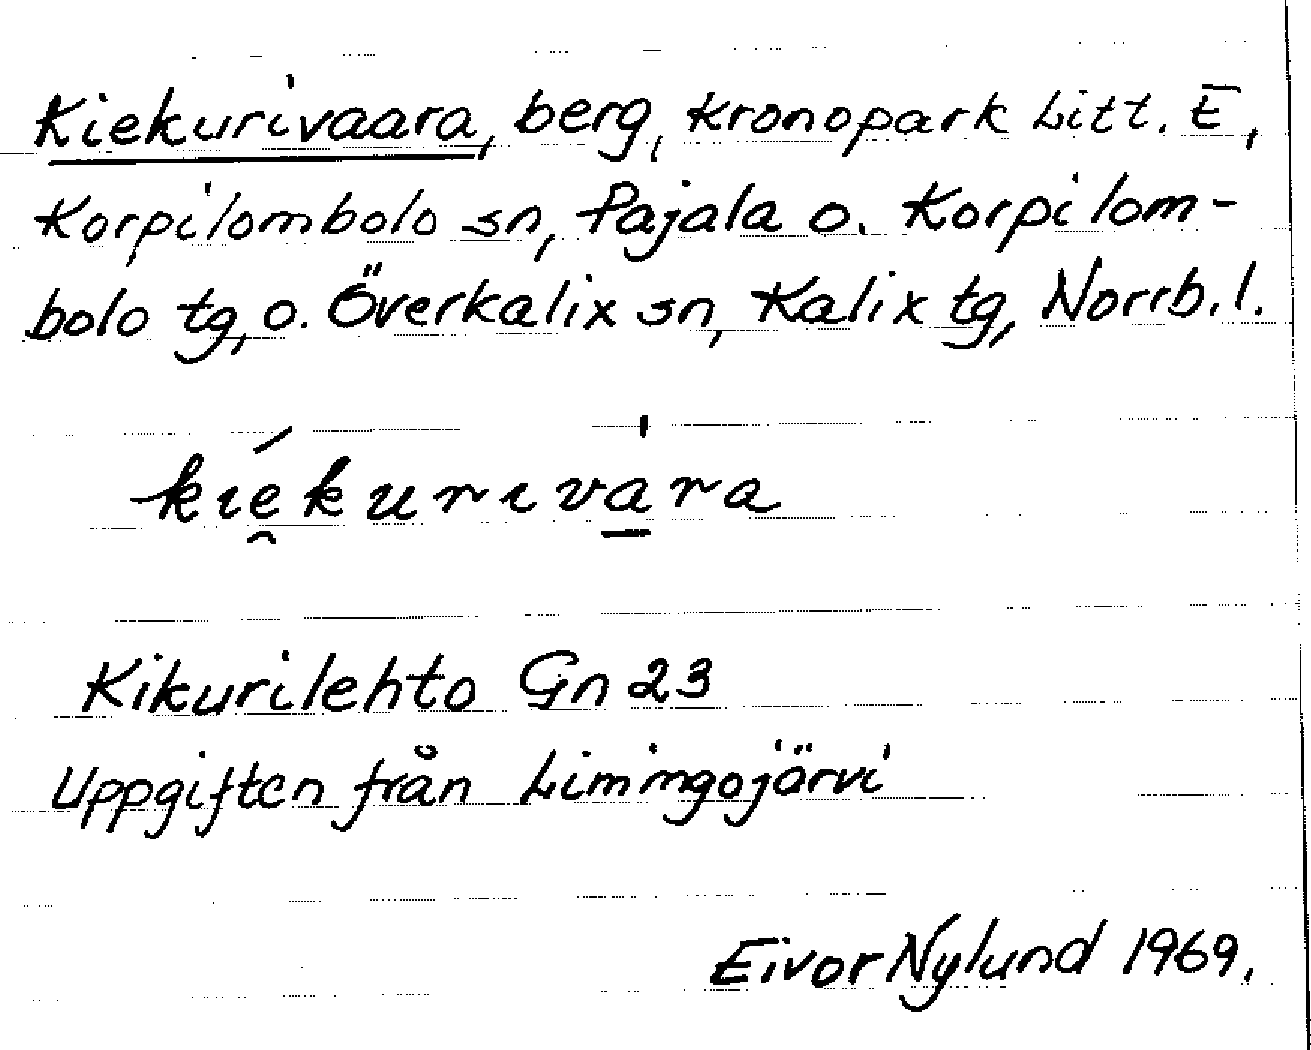 Kiekurivaara, berg, kronopark Litt. E,
Korpilombolo sn, Pajala o. Korpilom-
bolo tg, o. Överkalix sn, Kalix tg, Norrb. l.
kıé̯kurıvà̱ra
Kikurilehto Gn 23
Uppgiften från Limingojärvi
Eivor Nylund 1969.